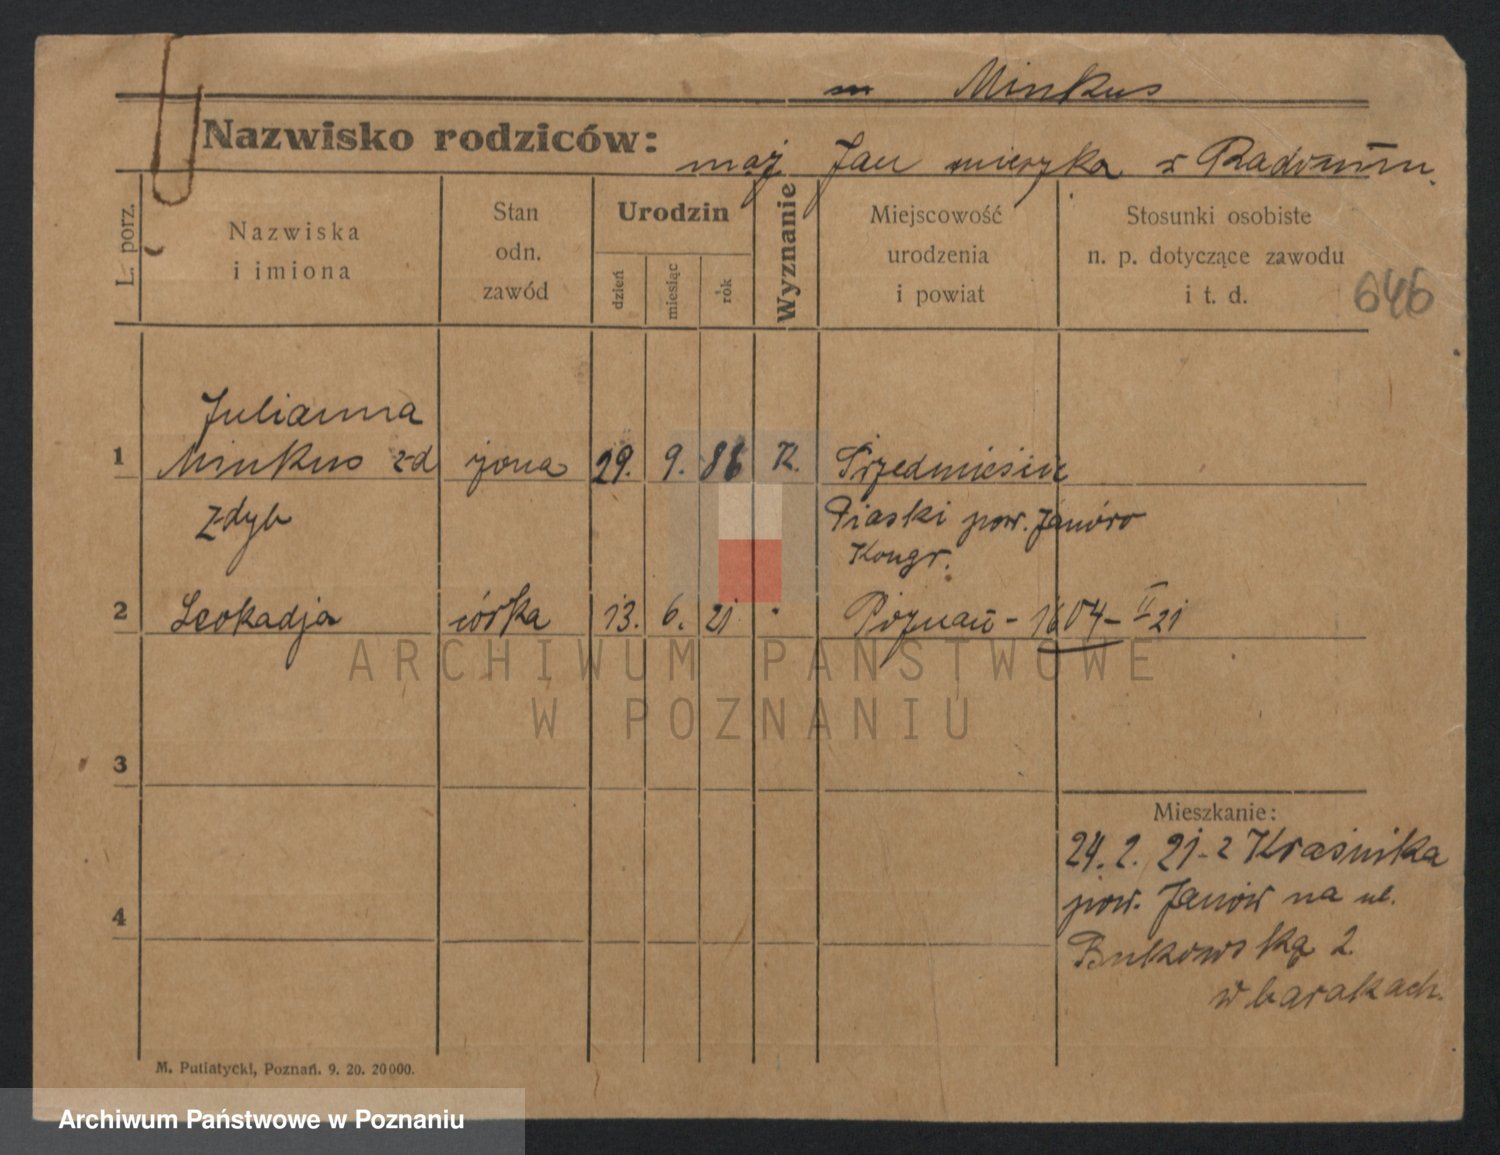 m Minkus
Nazwisko rodziców:
mąż Jan mieszka w
L. porz.
Nazwiska
i imiona
Stan
odn.
zawód
Urodzin
dzień
miesiąc
rok
Wyznanie
Miejscowość
urodzenia
i powiat
Stosunki osobiste
n. p. dotyczące zawodu
i t. d.
646
Julianna
1 Minkus z-d żona 29. 9. 86 K. Przedmieście
Zdyb Piaski pow. Janów
Kongr.
2 Leokadja córka 13. 6. 21 " Poznań - 1604 - II 21
3
Mieszkanie:
24. 2. 21 - z Kraśnika
pow. Janów na ul.
4
Bukowską 2
w barakach.
M. Putiatycki, Poznań. 9. 20. 20000.
ARCHIWUM PAŃSTWOWE
W POZNANIU
Archiwum Państwowe w Poznaniu